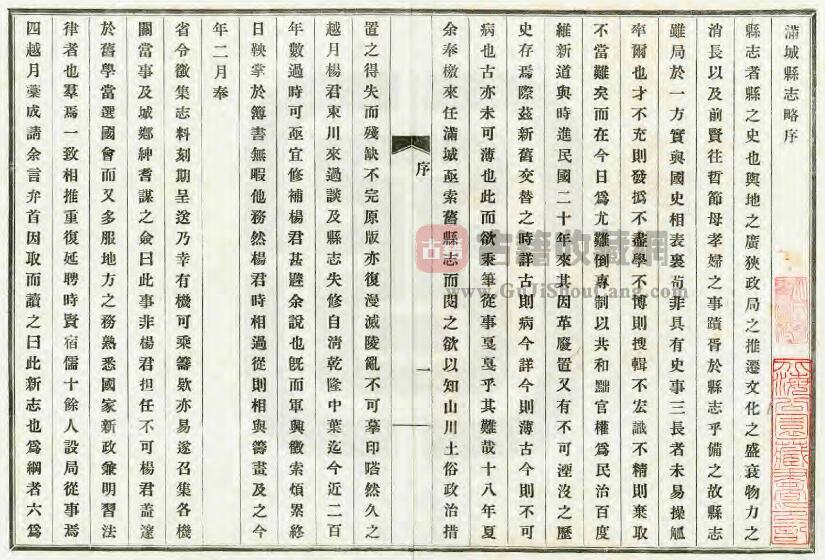 滿城縣志略序
縣志者縣之史也輿地之廣狹政局之推遷文化之盛衰物力之
消長以及前賢往哲節母孝婦之事蹟胥於縣志乎備之故縣志
雖局於一方實與國史相表裏苟非具有史事三長者未易操觚
率爾也才不充則發撝不盡學不博則搜輯不宏識不精則棄取
不當難矣而在今日爲尤難倒專制以共和黜官權爲民治百度
維新道與時進民國二十年來其因革廢置又有不可湮沒之歷
史存焉際茲新舊交替之時詳古則病今詳今則薄古今則不可
病也古亦未可薄也此而欲秉筆從事戛戛乎其難哉十八年夏
余奉檄來任滿城亟索舊縣志而閱之欲以知山川土俗政治措
序
一
置之得失而殘缺不完原版亦復漫滅陵亂不可摹印嗒然久之
越月楊君東川來過談及縣志失修自清乾隆中葉迄今近二百
年數過時可亟宜修補楊君甚韙余說也旣而軍興徵索煩累終
日鞅掌於簿書無暇他務然楊君時相過從則相與籌畫及之今
年二月奉
省令徵集志料刻期呈送乃幸有機可乘籌欵亦易遂召集各機
關當事及城鄉紳耆謀之僉曰此事非楊君担任不可楊君蓋邃
於舊學當選國會而又多服地方之務熟悉國家新政兼明習法
律者也羣焉一致相推重復延聘時賢宿儒十餘人設局從事焉
四越月藁成請余言弁首因取而讀之曰此新志也爲綱者六爲
古籍
古籍收藏網
www.GuJiShouCang.com